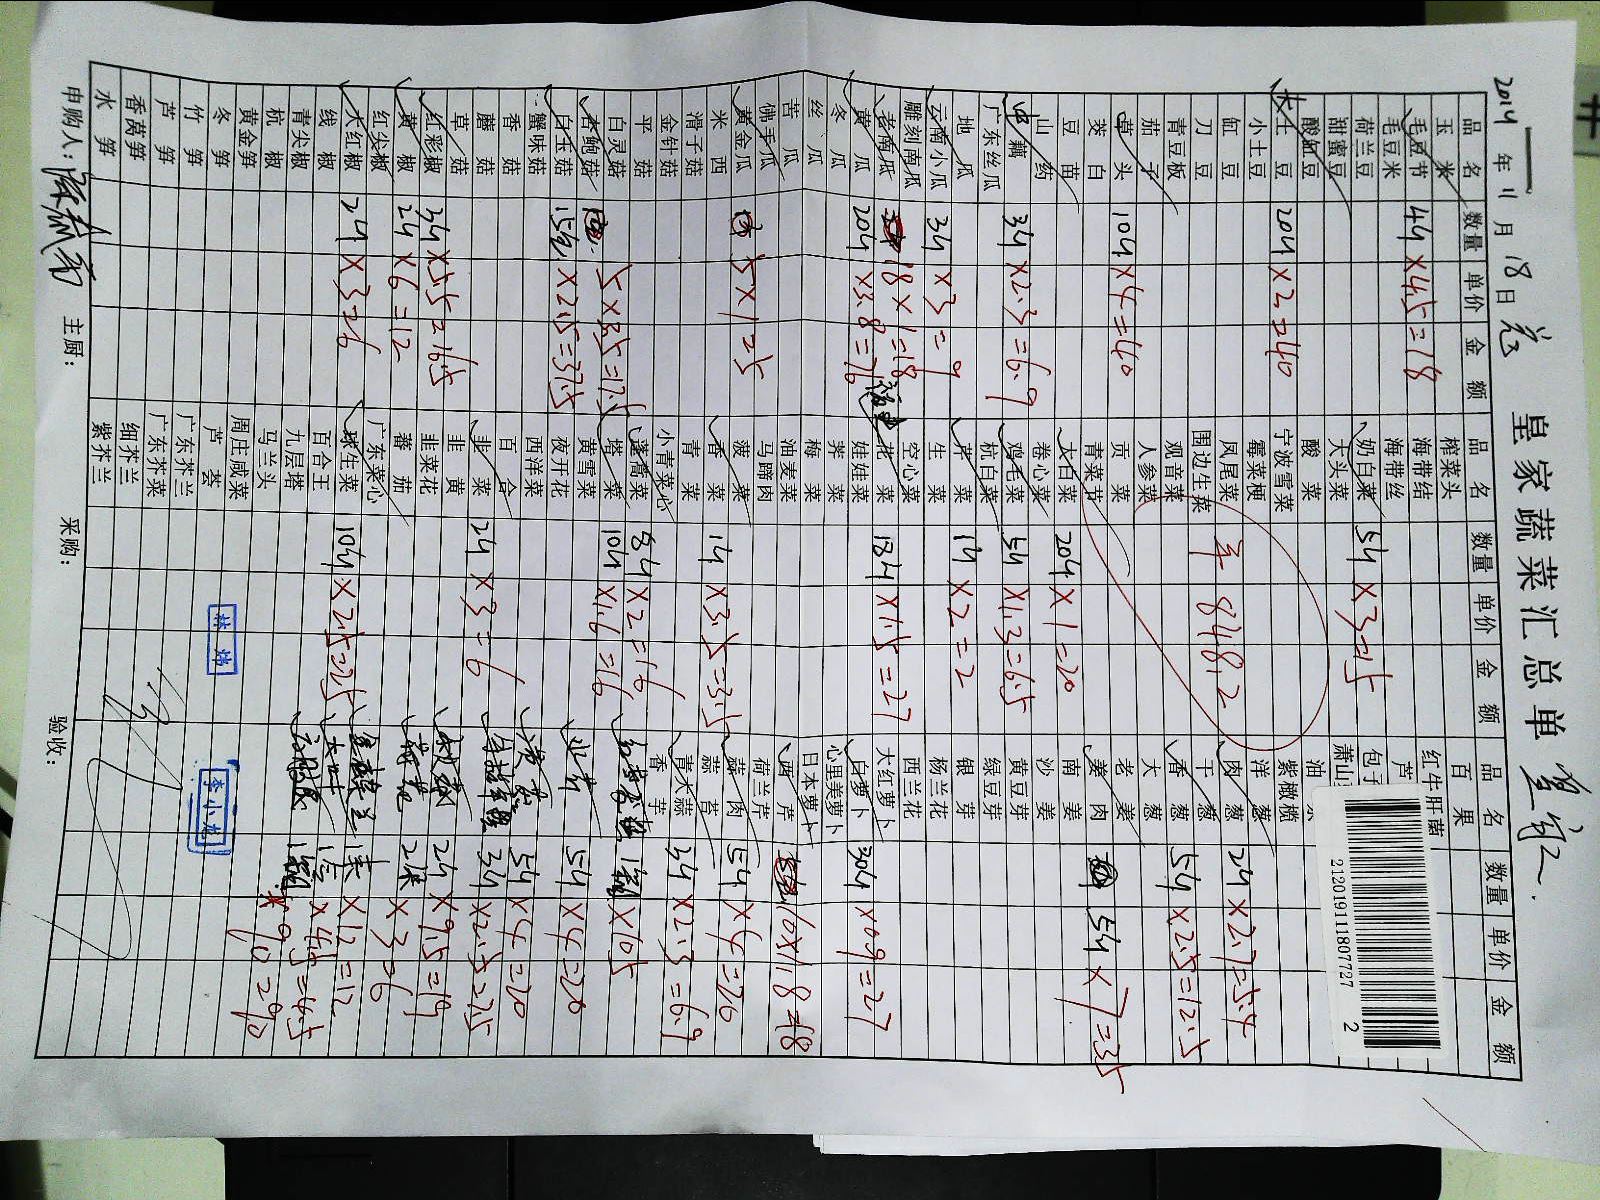 皇家蔬菜汇总单
2014 年 11 月 18 日
品名 数量 单价 金额 品名 数量 单价 金额 品名 数量 单价 金额
玉米 榨菜头 百果
毛豆节 4斤 ×4.5=18 海带结 红牛肝菌
毛豆米 海带丝 芦
荷兰豆 奶白菜 5斤 ×3=15 包子
甜蜜豆 大头菜 萧山
酸豇豆 酸菜 油
土豆 20斤 ×2=40 宁波雪菜 紫橄榄
小土豆 霉菜梗 洋葱
豇豆 凤尾菜 肉葱 2斤 ×2.7=5.4
刀豆 围边生菜 干葱
848.2
青豆板 观音菜 香葱 5斤 ×2.5=12.5
茄子 人参菜 大葱
草头 10斤 ×4=40 贡菜 老姜
茭白 青菜苔 姜肉 5斤 ×7=35
豆苗 大白菜 20斤 ×1=20 南姜
山药 卷心菜 沙姜
藕 3斤 ×2.3=6.9 鸡毛菜 5斤 ×1.3=6.5 黄豆芽
广东丝瓜 杭白菜 绿豆芽
地瓜 芹菜 1斤 ×2=2 银芽
云南小瓜 3斤 ×3=9 生菜 杨兰花
雕刻南瓜 空心菜 西兰花
老南瓜 18×1=18 花菜 18斤 ×1.5=27 大红萝卜
黄瓜 20斤 ×3.8=76 娃娃菜 白萝卜 30斤 ×0.9=27
冬瓜 荠菜 心里美萝卜
丝瓜 梅菜 日本萝卜
苦瓜 油麦菜 西芹 10×1.8=18
佛手瓜 马蹄肉 荷兰芹
黄金瓜 5×1=5 菠菜 蒜肉 5斤 ×4=20
米西 香菜 1斤 ×3.5=3.5 蒜苔
滑子菇 青菜 青大蒜 3斤 ×2.3=6.9
金针菇 小青菜心 香芋
平菇 蓬蒿菜 8斤 ×2=16
白灵菇 塔菜 10斤 ×1.6=16
杏鲍菇 5×3.5=17.5 黄雪菜
白玉菇 15 ×2.5=37.5 夜开花 冰草 5斤 ×4=20
蟹味菇 西洋菜
香菇 百合 5斤 ×4=20
蘑菇 韭菜 2斤 ×3=6 3斤 ×2.5=7.5
草菇 韭黄
红彩椒 3斤 ×5.5=16.5 韭菜花 2斤 ×9.5=19
黄椒 2斤 ×6=12 蕃茄 ×3=6
红尖椒 广东菜心
大红椒 2斤 ×3=6 球生菜 10斤 ×2.5=25 ×12=12
线椒 百合王 ×4.5=4.5
青尖椒 九层塔
杭椒 马兰头 ×90=90
黄金笋 周庄咸菜
冬笋 芦荟
竹笋 广东芥兰
芦笋 广东芥菜
香莴笋 细芥兰
水笋 紫芥兰
申购人: 主厨: 采购: 验收:
林炜
李小龙
212019111807727 2